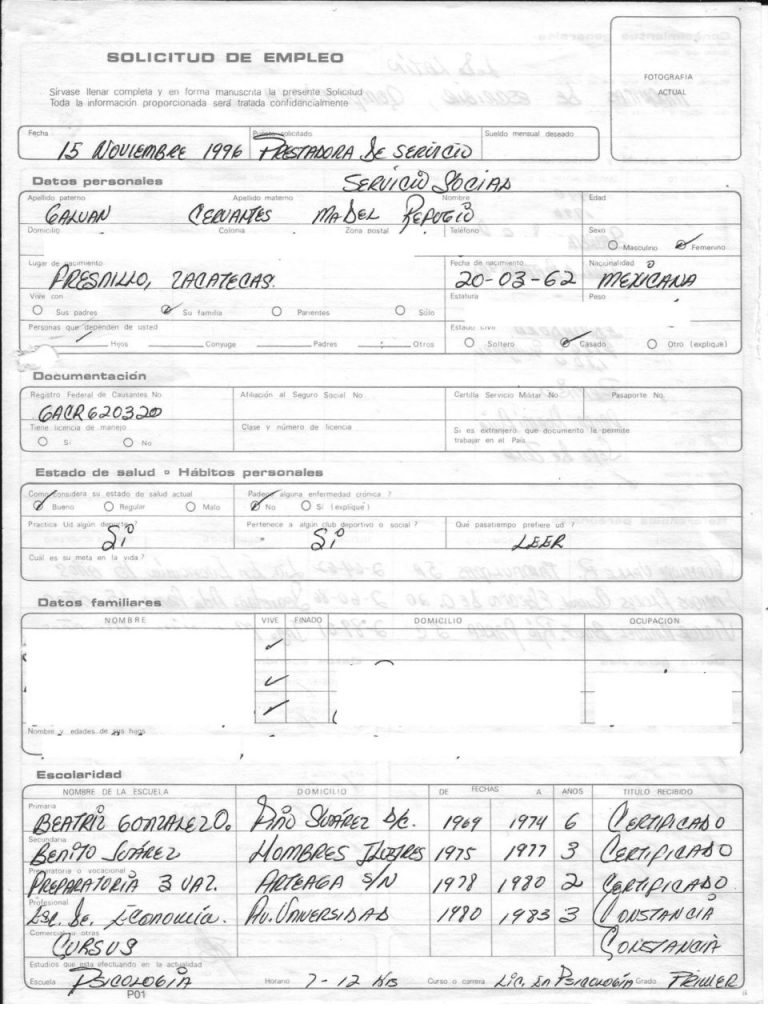 SOLICITUD DE EMPLEO
Sírvase llenar completa y en forma manuscrita la presente Solicitud
Toda la información proporcionada será tratada confidencialmente
FOTOGRAFIA
ACTUAL
Fecha Puesto solicitado Sueldo mensual deseado
15 NOVIEMBRE 1996 PRESTADORA DE SERVICIO
SERVICIO SOCIAL
Datos personales
Apellido paterno Apellido materno Nombre Edad
GALVAN CERVANTES MA DEL REFUGIO
Domicilio Colonia Zona postal Teléfono Sexo
Masculino Femenino
Lugar de nacimiento Fecha de nacimiento Nacionalidad
FRESNILLO, ZACATECAS. 20-03-62 MEXICANA
Vive con Estatura Peso
Sus padres Su familia Parientes Sólo
Personas que dependen de usted Estado Civil
Hijos Conyuge Padres Otros Soltero Casado Otro (explique)
Documentación
Registro Federal de Causantes No. Afiliación al Seguro Social No. Cartilla Servicio Militar No. Pasaporte No.
GACR620320
Tiene licencia de manejo Clase y número de licencia Si es extranjero, que documento le permite
trabajar en el País
Si No
Estado de salud Hábitos personales
Como considera su estado de salud actual Padece alguna enfermedad crónica ?
Bueno Regular Malo No Si (explique)
Practica Ud algún deporte ? Pertenece a algún club deportivo o social ? Qué pasatiempo prefiere ud ?
Si Si LEER
Cuál es su meta en la vida ?
Datos familiares
NOMBRE VIVE FINADO DOMICILIO OCUPACION
Nombre y edades de sus hijos
Escolaridad
NOMBRE DE LA ESCUELA DOMICILIO DE FECHAS A AÑOS TITULO RECIBIDO
Primaria
BEATRIZ GONZALEZ O. PINO SUÁREZ S/C. 1969 1974 6 CERTIFICADO
Secundaria
BENITO JUÁREZ HOMBRES ILUSTRES 1975 1977 3 CERTIFICADO
Preparatoria o vocacional
PREPARATORIA 3 UAZ. ARTEAGA S/N 1978 1980 2 CERTIFICADO
Profesional
ESC. DE ECONOMÍA. AV. UNIVERSIDAD 1980 1983 3 CONSTANCIA
Comercial u otras
CURSOS CONSTANCIA
Estudios que esta efectuando en la actualidad
Escuela PSICOLOGÍA Horario 7-12 Hrs Curso o carrera LIC. EN PSICOLOGÍA Grado PRIMER
P01